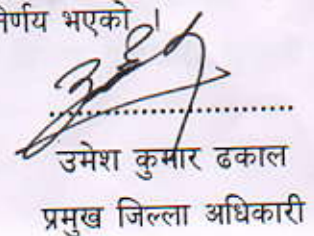 निर्णय भएको ।
उमेश कुमार ढकाल
प्रमुख जिल्ला अधिकारी